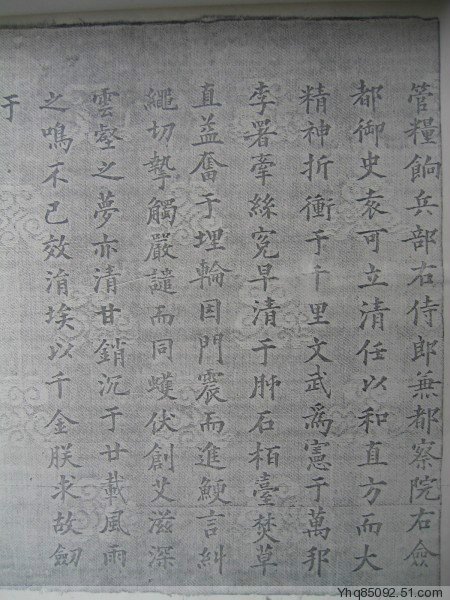 管糧餉兵部右侍郎兼都察院右僉
都御史袁可立清任以和直方而大
精神折衝于千里文武為憲于萬邦
李署牽絲寃早清于肺石栢臺焚草
直益奮于埋輪因門震而進鯁言糾
繩切摯觸嚴譴而同蠖伏創艾滋深
雲壑之夢亦清甘銷沉于廿載風雨
之鳴不已效消埃以千金朕求故劎
于
Yhq85092.51.com